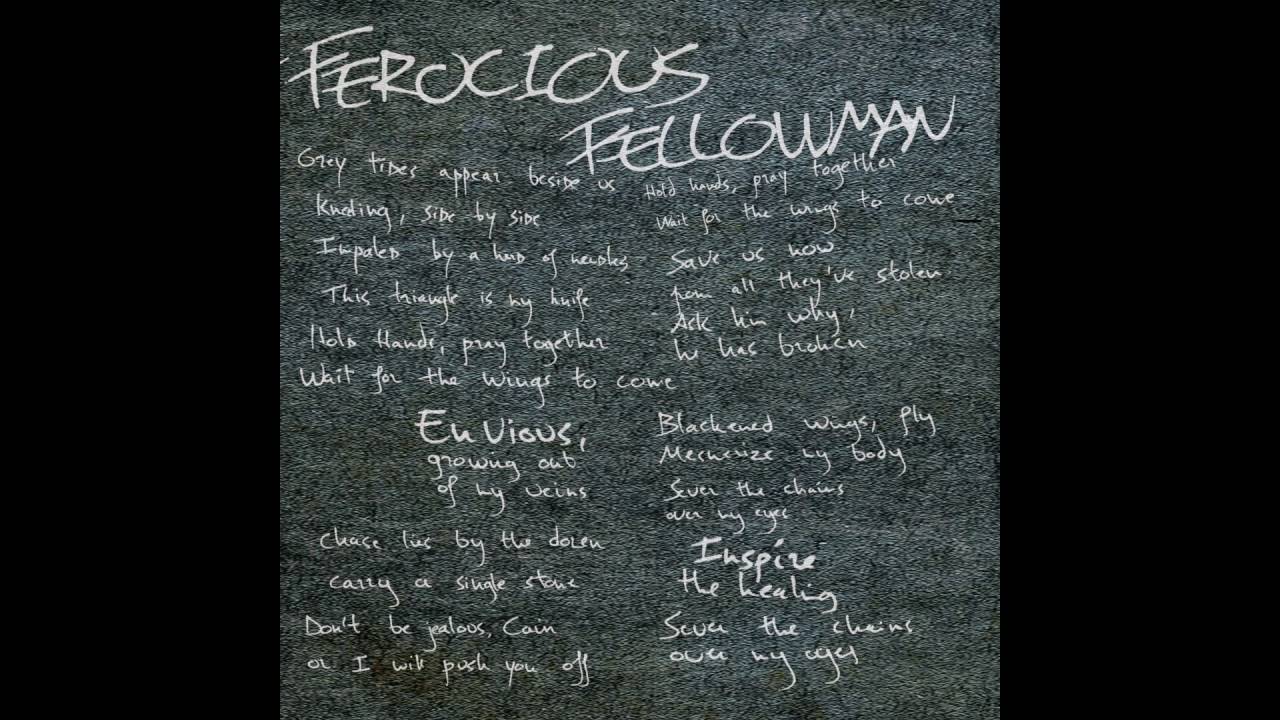 FEROCIOUS
FELLOWMAN
Grey tides appear beside us
Kneeling, side by side
Impaled by a herd of needles
This triangle is my knife
Hold Hands, pray together
Wait for the wings to come
Envious,
growing out
of my veins
Chase lies by the dozen
carry a single stone
Don't be jealous, Cain
or I will push you off
Hold hands, pray together
Wait for the wings to come
Save us now
from all they've stolen
Ask him why,
he has broken
Blackened wings, fly
Mesmerize my body
Sever the chains
over my eyes
Inspire
the healing
Sever the chains
over my eyes